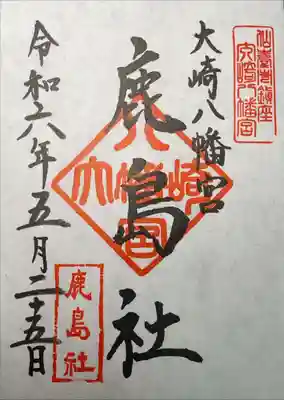 仙臺總鎮座
大崎八幡宮
大崎八幡宮
鹿島社
大崎八幡宮
令和六年五月二十五日
鹿島社